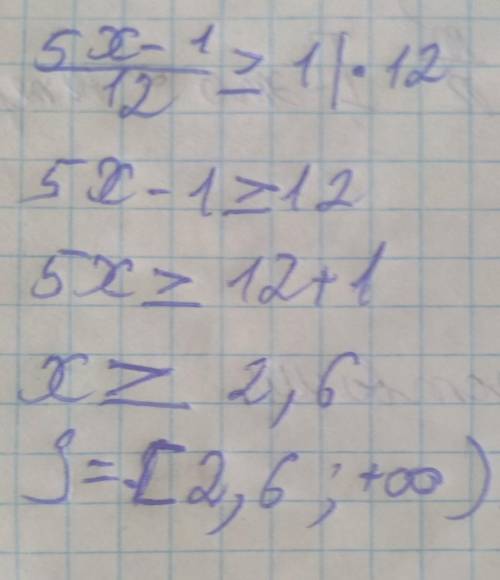 5x - 1 / 12 ≥ 1 | · 12
5x - 1 ≥ 12
5x ≥ 12 + 1
x ≥ 2,6
J = [2,6 ; +∞)